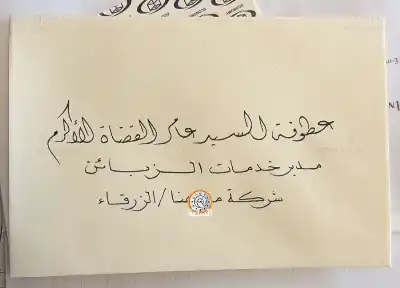 عطوفة السيد عامر القضاة الأكرم
مدير خدمات الزبائن
شركة منا/الزرقاء